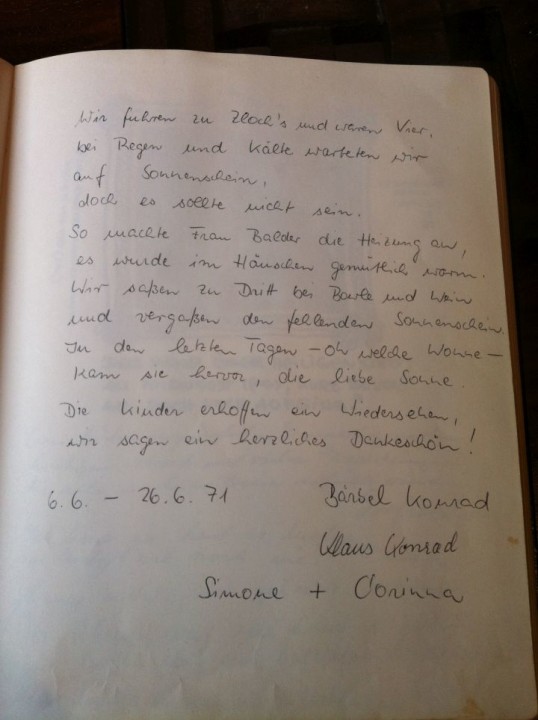 Wir fuhren zu Zloch's und waren Vier,
bei Regen und Kälte warteten wir
auf Sonnenschein,
doch es sollte nicht sein.
So machte Frau Balder die Heizung an,
es wurde im Häuschen gemütlich warm.
Wir saßen zu Dritt bei Bowle und Wein
und vergaßen den fehlenden Sonnenschein.
In den letzten Tagen – oh welche Wonne –
kam sie hervor, die liebe Sonne.
Die Kinder erhoffen ein Wiedersehen,
wir sagen ein herzliches Dankeschön!
6.6. – 26.6.71 Bärbel Konrad
Klaus Konrad
Simone + Corinna